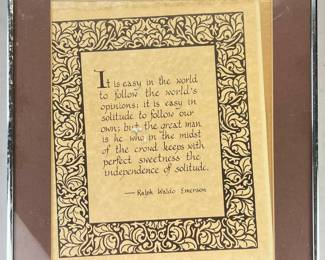 It is easy in the world
to follow the world's
opinions; it is easy in
solitude to follow our
own; but the great man
is he who in the midst
of the crowd keeps with
perfect sweetness the
independence of solitude.
— Ralph Waldo Emerson